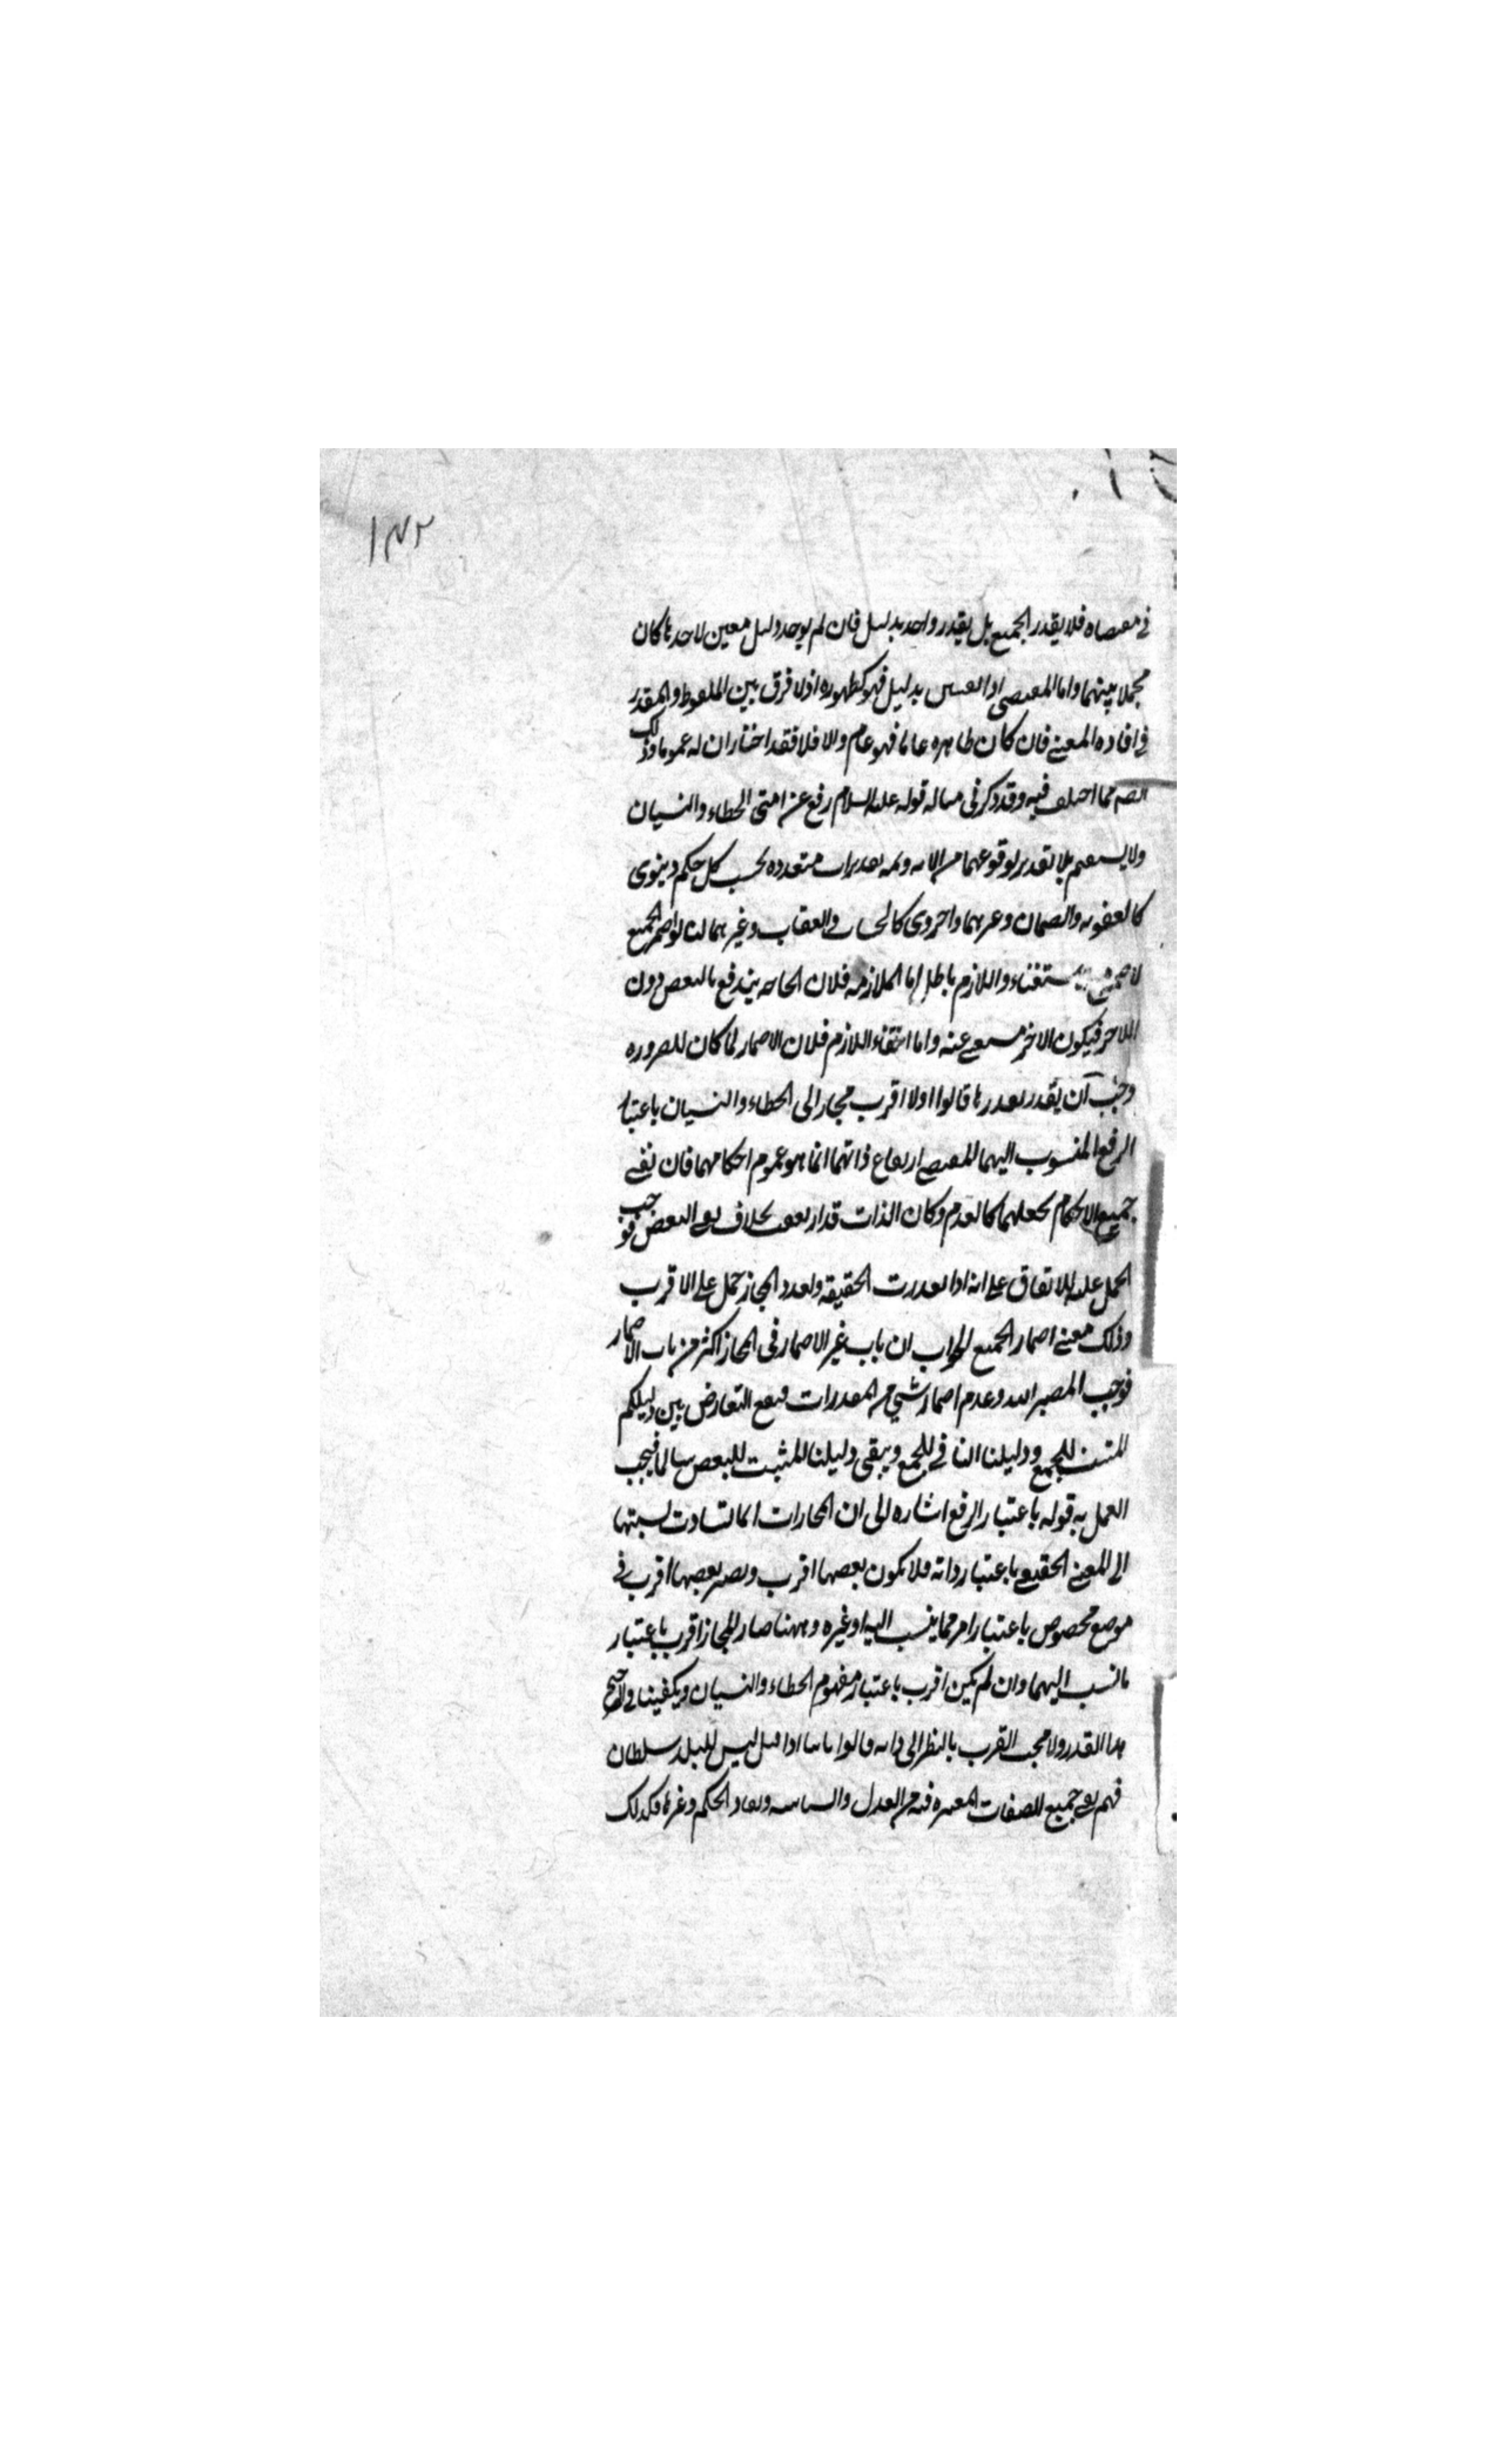 ١٤٢
في مقتضاه فلا يقدر الجميع بل يقدر واحد بدليل فان لم يوجد دليل معين لاحدها كان
مجملا بينهما واما المقتضى اذا تعين بدليل فهو كظهوره اذ لا فرق بين الملفوظ والمقدر
في افادة المعنى فان كان ظاهره عاما فهو عام والا فلا فقد اختار ان له عموما وذلك
ايضا مما اختلف فيه وقد ذكر في مساله قوله عليه السلام رفع عن امتي الخطاء والنسيان
ولا يستقيم بلا تقدير لوقوعهما من الامة وثمه تقديرات متعدده بحسب كل حكم دينوى
كالعقوبه والضمان وغيرهما واخروى كالحساب والعقاب وغيرهما لنا لو اضمر الجميع
لاضمر مع الاستغناء واللازم باطل اما الملازمه فلان الحاجه يندفع بالبعض دون
الاخر فيكون الاخر مستغنى عنه واما انتفاء اللازم فلان الاضمار لما كان للضروره
وجب ان يقدر بقدرها قالوا اولا اقرب مجاز الى الخطاء والنسيان باعتبار
الرفع المنسوب اليهما المقتضى ارتفاع ذاتهما انما هو عموم احكامهما فان نفى
جميع الاحكام يجعلهما كالعدم وكان الذات قد ارتفعت بخلاف نفى البعض فوجب
الحمل عليه للاتفاق على انه اذا تعذرت الحقيقه وتعدد المجاز حمل على الاقرب
وذلك معنى اضمار الجميع الجواب ان باب غير الاضمار فى المجاز اكثر من باب الاضمار
فوجب المصير اليه وعدم اضمار شئ من المقدرات فيقع التعارض بين دليلكم
المثبت للجميع ودليلنا النافى للجميع ويبقى دليلنا المثبت للبعض سالما فيجب
العمل به قوله باعتبار الرفع اشاره الى ان المجازات انما تساوت نسبتها
الى المعنى الحقيقى باعتبار ذاته فلا يكون بعضها اقرب ويصير بعضها اقرب فى
موضع مخصوص باعتبار امر مما ينسب اليه او غيره وههنا صار المجاز اقرب باعتبار
ما نسب اليهما وان لم يكن اقرب باعتبار مفهوم الخطاء والنسيان ويكفينا فى
هذا القدر ولا يجب القرب بالنظر الى ذاته قالوا ثانيا اذا قيل ليس للبلد سلطان
فهم نفى جميع الصفات المعتبره فيه من العدل والسياسه ونفاذ الحكم وغيرها فكذلك